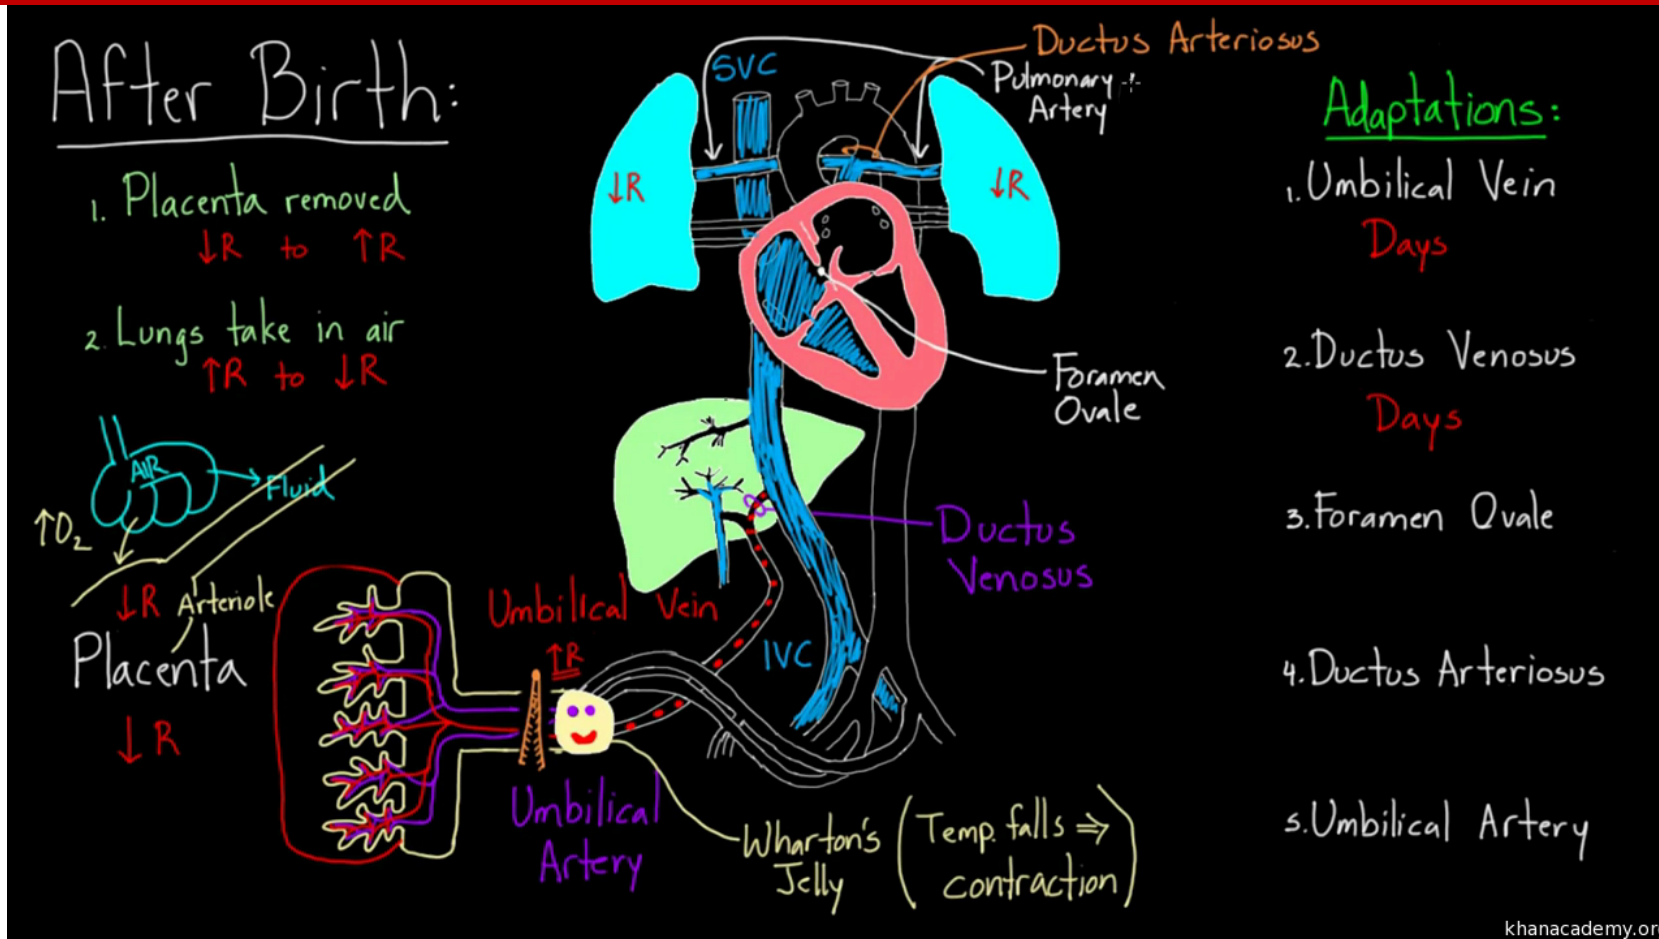 After Birth:
1. Placenta removed
↓R to ↑R
2. Lungs take in air
↑R to ↓R
AIR
Fluid
↑O2
↓R
Arteriole
Placenta
↓R
SVC
Ductus Arteriosus
Pulmonary
Artery
↓R
↓R
Foramen
Ovale
Ductus
Venosus
Umbilical Vein
↑R
IVC
Umbilical
Artery
Wharton's
Jelly
(Temp. falls ⇒
contraction)
Adaptations:
1. Umbilical Vein
Days
2. Ductus Venosus
Days
3. Foramen Ovale
4. Ductus Arteriosus
5. Umbilical Artery
khanacademy.or